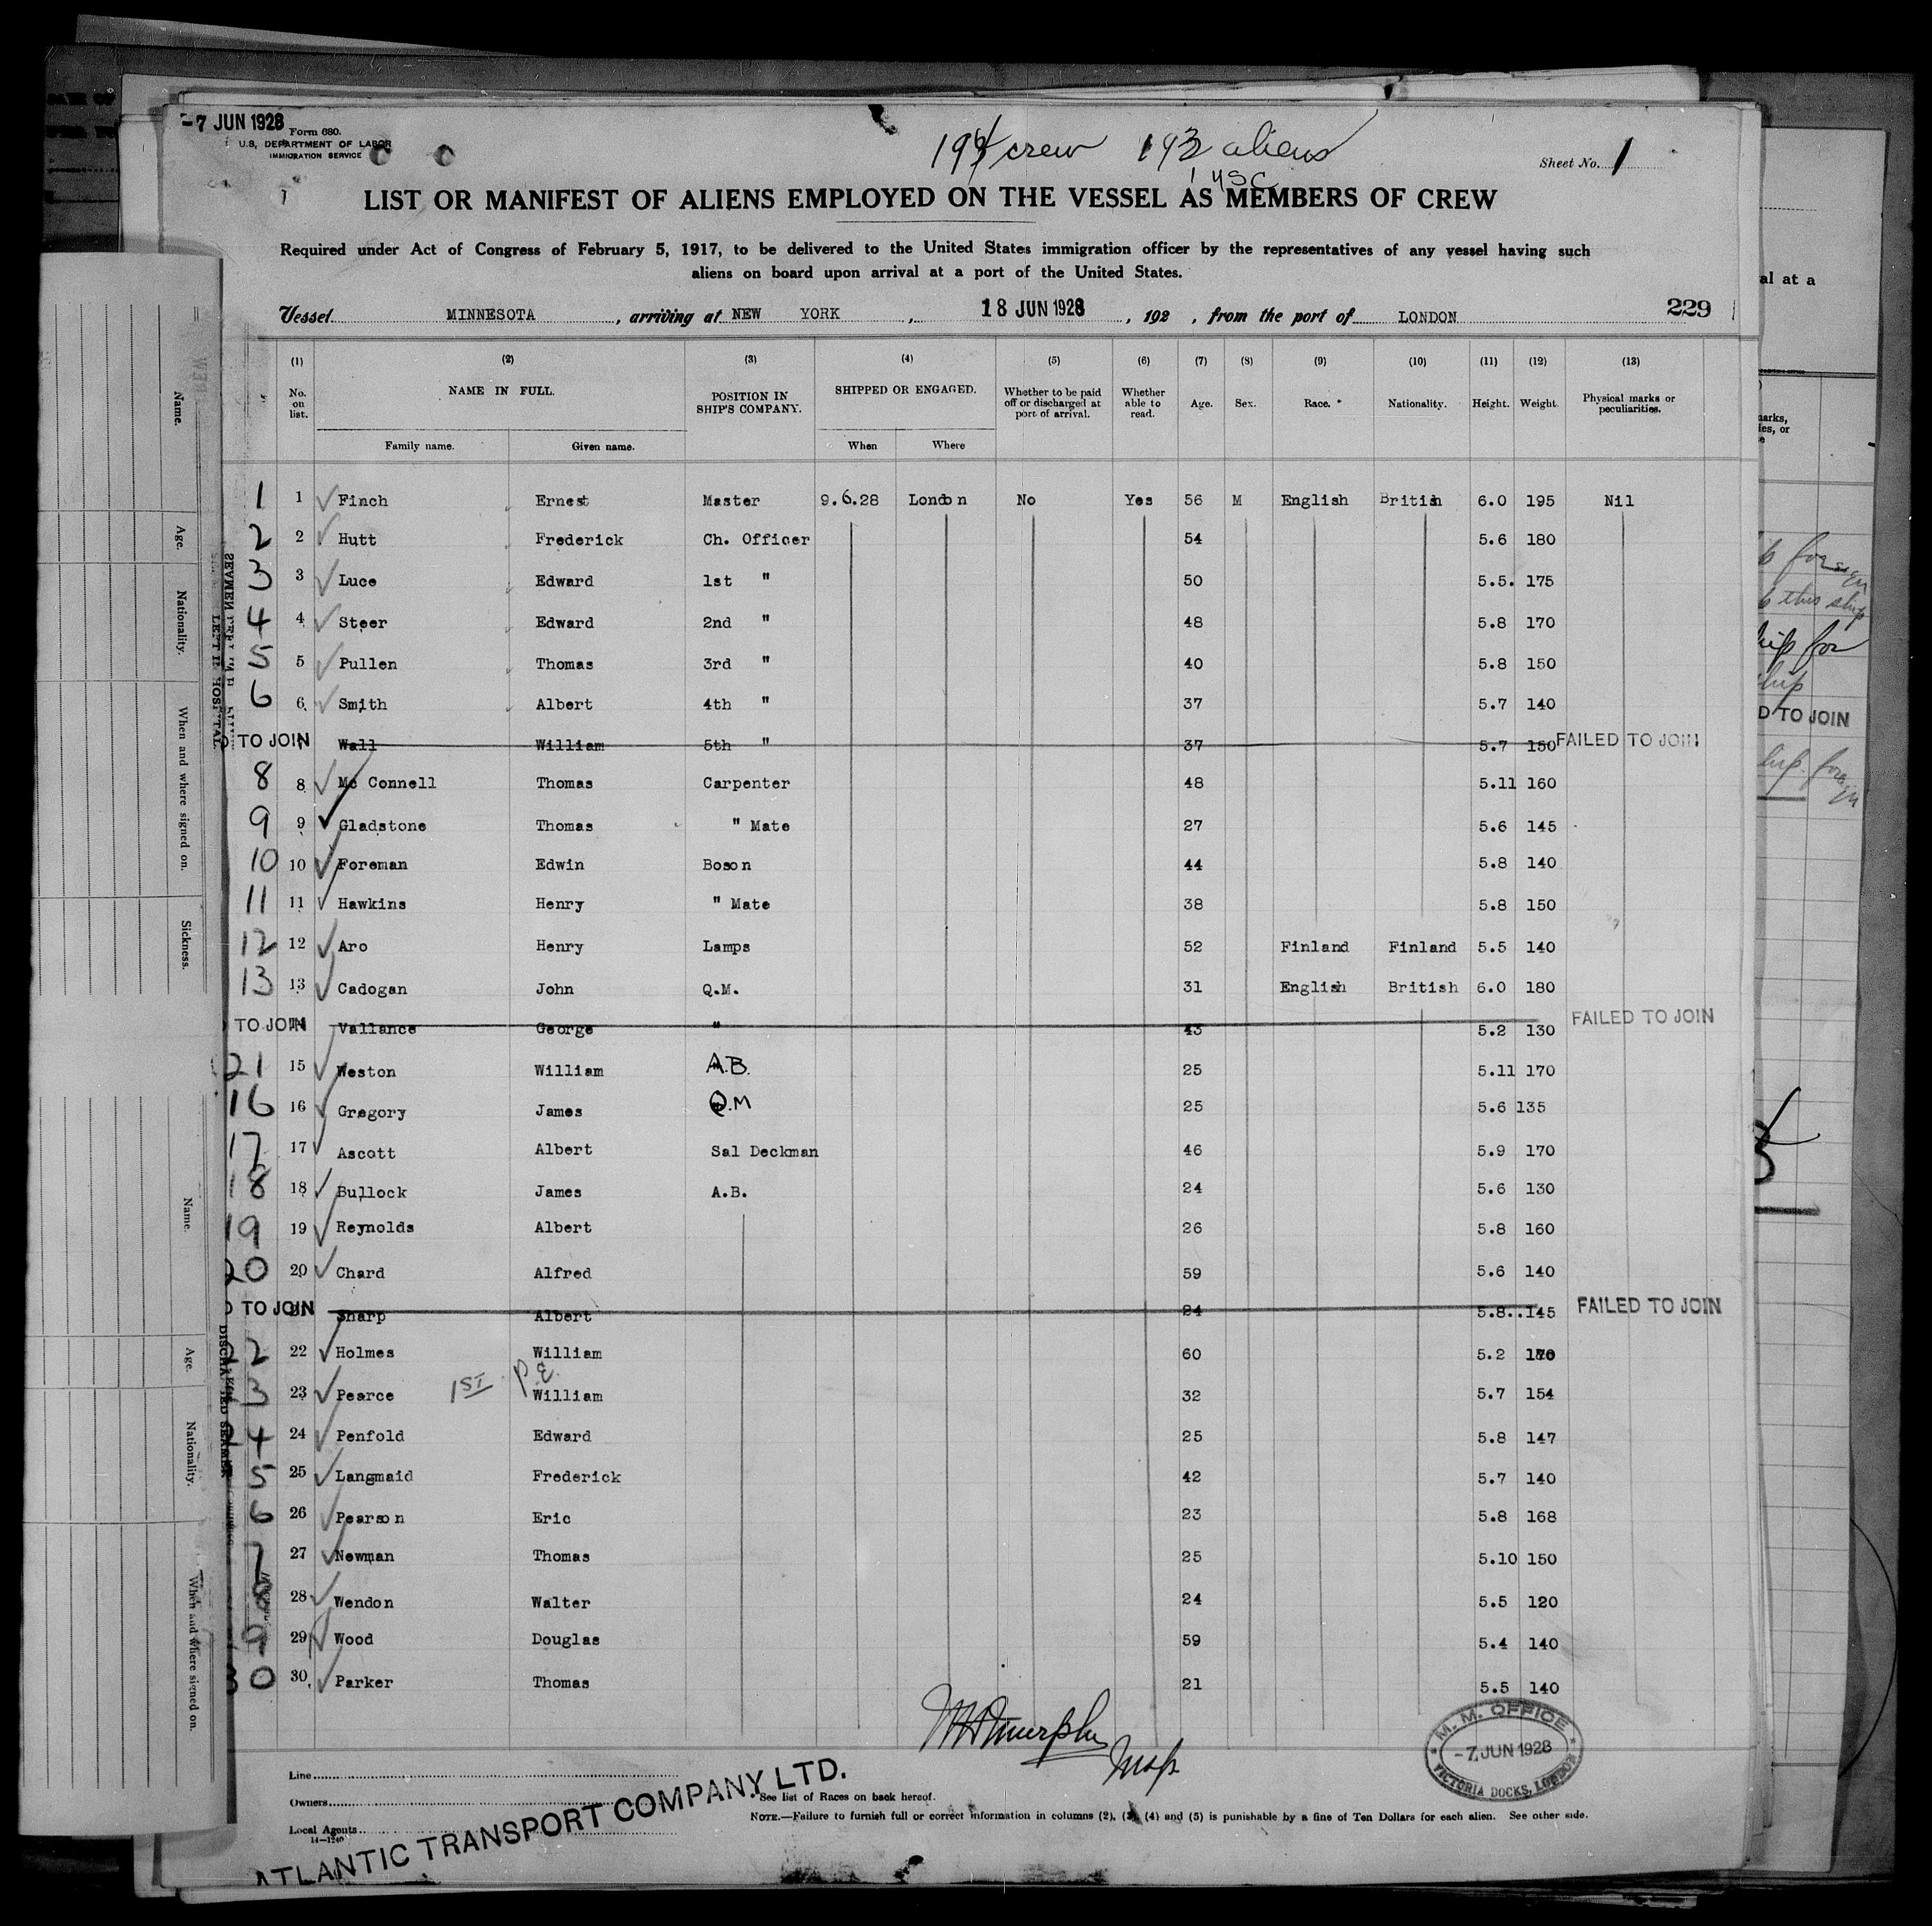 -7 JUN 1928
Form 680.
U.S. DEPARTMENT OF LABOR
IMMIGRATION SERVICE
crew 193 aliens
1 USC
Sheet No. 1
LIST OR MANIFEST OF ALIENS EMPLOYED ON THE VESSEL AS MEMBERS OF CREW
Required under Act of Congress of February 5, 1917, to be delivered to the United States immigration officer by the representatives of any vessel having such
aliens on board upon arrival at a port of the United States.
Vessel MINNESOTA, arriving at NEW YORK, 18 JUN 1928, 192 , from the port of LONDON 229
(1) (2) (3) (4) (5) (6) (7) (8) (9) (10) (11) (12) (13)
No. on list. NAME IN FULL. POSITION IN SHIP'S COMPANY. SHIPPED OR ENGAGED. Whether to be paid off or discharged at port of arrival. Whether able to read. Age. Sex. Race. * Nationality. Height. Weight. Physical marks or peculiarities.
Family name. Given name. When Where
1 1 Finch Ernest Master 9.6.28 London No Yes 56 M English British 6.0 195 Nil
2 2 Hutt Frederick Ch. Officer 54 5.6 180
3 3 Luce Edward 1st " 50 5.5. 175
4 4 Steer Edward 2nd " 48 5.8 170
5 5 Pullen Thomas 3rd " 40 5.8 150
6 6 Smith Albert 4th " 37 5.7 140
TO JOIN Wall William 5th " 37 5.7 150 FAILED TO JOIN
8 8 Mc Connell Thomas Carpenter 48 5.11 160
9 9 Gladstone Thomas " Mate 27 5.6 145
10 10 Foreman Edwin Boson 44 5.8 140
11 11 Hawkins Henry " Mate 38 5.8 150
12 12 Aro Henry Lamps 52 Finland Finland 5.5 140
13 13 Cadogan John Q.M. 31 English British 6.0 180
TO JOIN Vallance George " 43 5.2 130 FAILED TO JOIN
21 15 Weston William A.B. 25 5.11 170
16 16 Gregory James Q.M 25 5.6 135
17 17 Ascott Albert Sal Deckman 46 5.9 170
18 18 Bullock James A.B. 24 5.6 130
19 19 Reynolds Albert 26 5.8 160
20 20 Chard Alfred 59 5.6 140
TO JOIN Sharp Albert 24 5.8..145 FAILED TO JOIN
22 22 Holmes William 60 5.2
3 23 Pearce 1ST P.E. William 32 5.7 154
4 24 Penfold Edward 25 5.8 147
5 25 Langmaid Frederick 42 5.7 140
6 26 Pearson Eric 23 5.8 168
7 27 Newman Thomas 25 5.10 150
8 28 Wendon Walter 24 5.5 120
9 29 Wood Douglas 59 5.4 140
30 30 Parker Thomas 21 5.5 140
M. M. OFFICE
-7 JUN 1928
VICTORIA DOCKS, LONDON
Line
Owners
Local Agents
14-1240
ATLANTIC TRANSPORT COMPANY LTD.
* See list of Races on back hereof.
NOTE.—Failure to furnish full or correct information in columns (2), (3), (4) and (5) is punishable by a fine of Ten Dollars for each alien. See other side.
Name.
Age.
Nationality.
When and where signed on.
Sickness.
Name.
Age.
Nationality.
When and where signed on.
LEFT IN HOSPITAL
DISCHARGED SEAMEN
al at a
this ship
ship for
ship
D TO JOIN